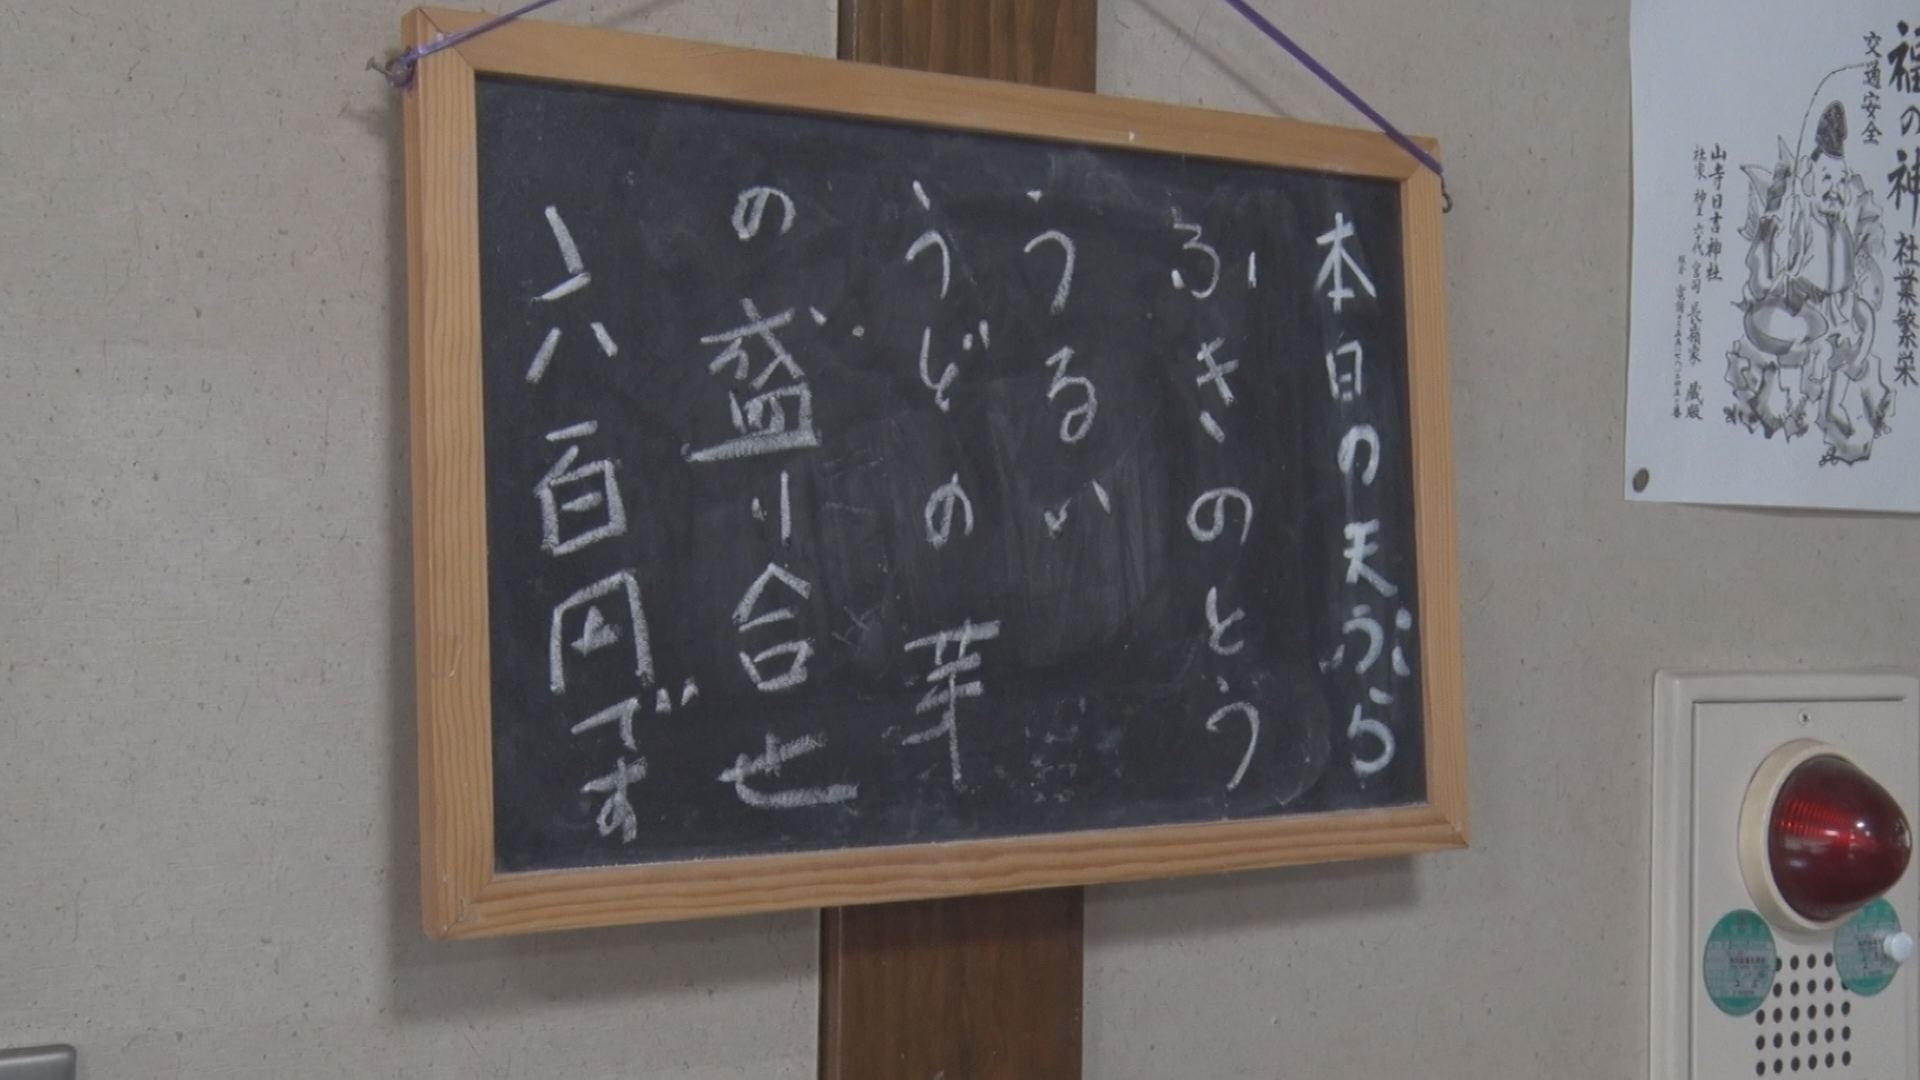 本日の天ぷら
ふきのとう
うるい
うどの芽
の盛り合せ
六百円です
福の神
社業繁栄
交通安全
山寺日吉神社